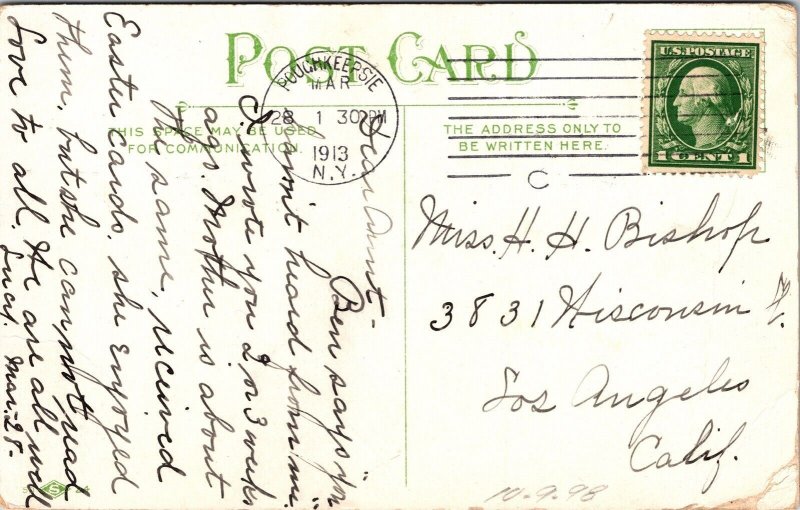 POST CARD
THIS SPACE MAY BE USED
FOR COMMUNICATION.
THE ADDRESS ONLY TO
BE WRITTEN HERE.
POUGHKEEPSIE
MAR
28 1 30 PM
1913
N.Y.
C
U.S. POSTAGE
1 CENT 1
Dear Aunt -
Ben says "you
haven't heard from me."
I wrote you 2 or 3 weeks
ago. Mother is about
the same, received
Easter cards, she enjoyed
them, but she cannot read
Love to all. We are all well
Lucy. Mar. 28 -
Miss. H. H. Bishop
3831 Wisconsin St.
Los Angeles
Calif.
10-9-98
S